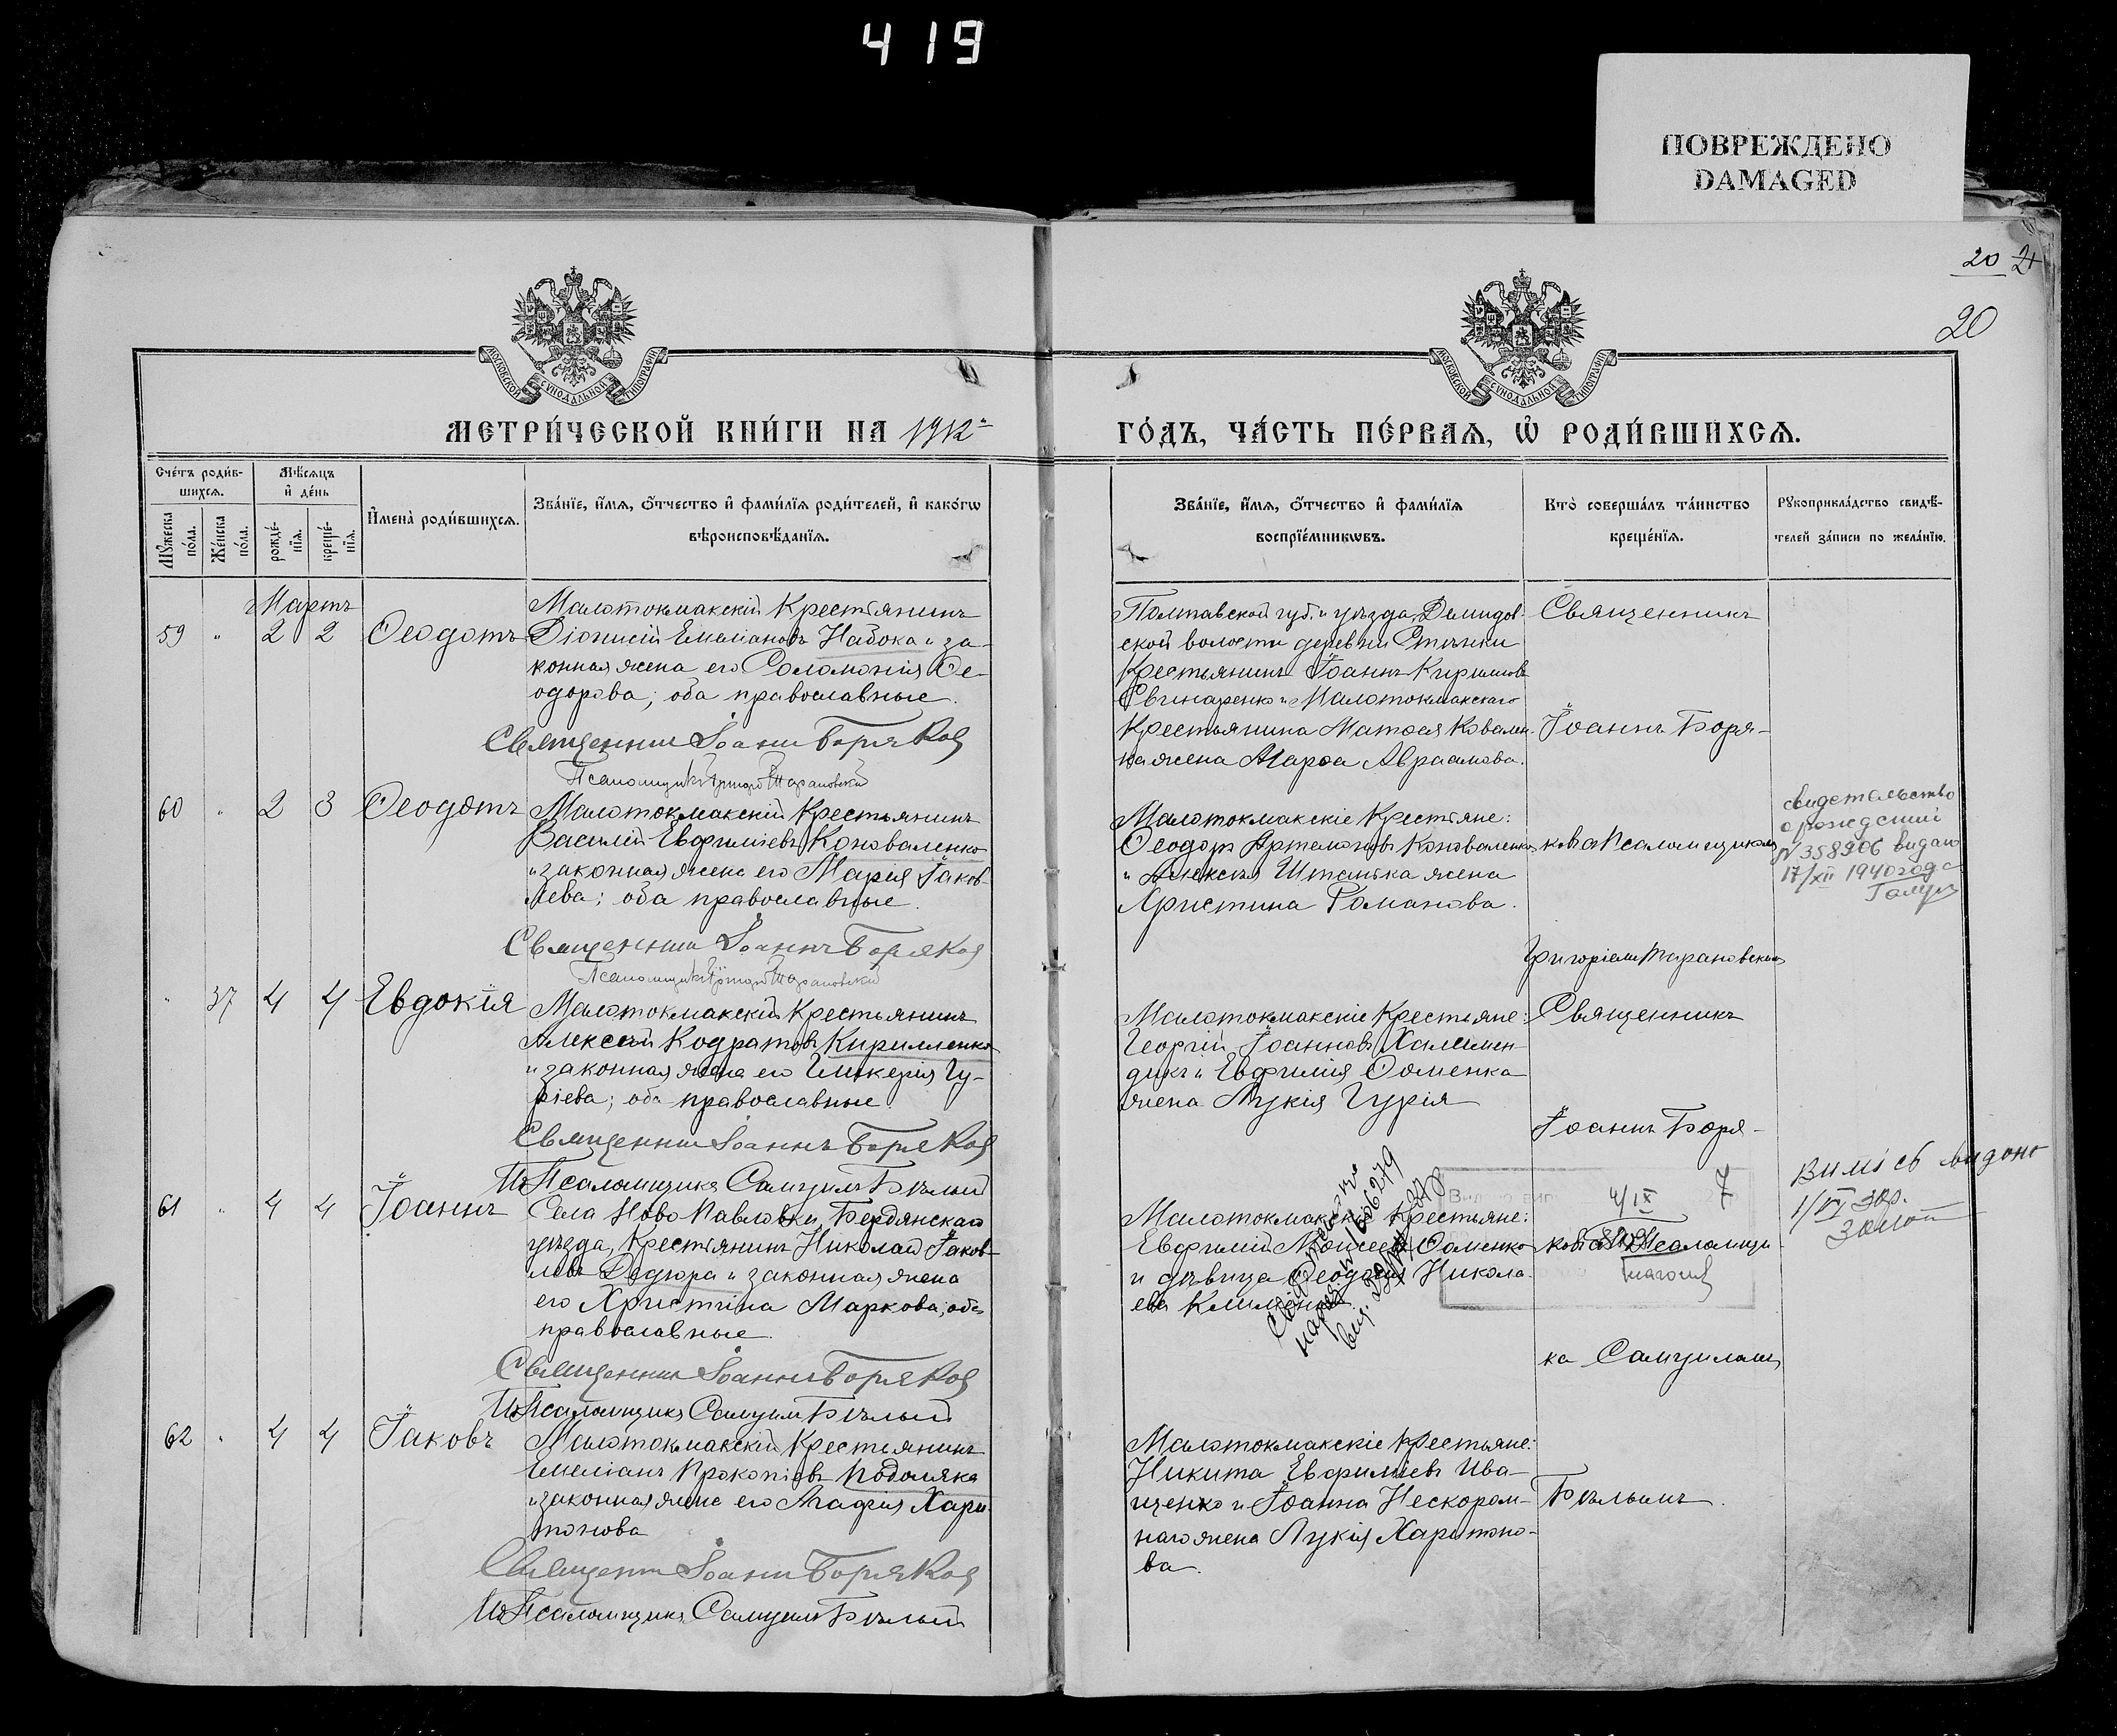 419
ПОВРЕЖДЕНО
DAMAGED
20
20
МОСКОВСКОЙ СѴНОДАЛЬНОЙ ТИПОГРАФІИ
МОСКОВСКОЙ СѴНОДАЛЬНОЙ ТИПОГРАФІИ
МЕТРИ́ЧЕСКОЙ КНИ́ГИ НА 1912
ГО́ДЪ, ЧА́СТЬ ПЕ́РВАЯ, Ѡ РОДИ́ВШИХСЯ.
Сче́тъ роди́в-
шихся.
Мѣ́сяцъ
и де́нь
Мꙋжеска
по́ла.
Же́нска
по́ла.
рожде́-
нїя.
креще́-
нїя.
Имена̀ роди́вшихся.
Зва́нїе, и́мя, ѻ́тчество и фами́лїя роди́телей, и како́гѡ
вѣроисповѣ́данїя.
Зва́нїе, и́мя, ѻ́тчество и фами́лїя
воспрїе́мникѡвъ.
Кто̀ соверша́лъ та́инство
креще́нїя.
Рꙋкоприкла́дство свидѣ́-
телей за́писи по жела́нїю.
Мартъ
59 " 2 2 Ѳеодотъ
Малотокмакскій Крестьянинъ
Діонисій Емеліановъ Набока и за-
конная жена его Соломонія Ѳе-
одорова; оба православные.
Священник Іоанн Боряков
Псаломщикъ Григорій Тарановский
Полтавской губ. и уѣзда, Демидов-
ской волости деревни Стѣнки
Крестьянинъ Іоаннъ Кириловъ
Свинаренко и Малотокмакскаго
Крестьянина Матѳея Ковален-
ка жена Марѳа Авраамова.
Священникъ
Іоаннъ Боря-
60 " 2 3 Ѳеодотъ
Малотокмакскій Крестьянинъ
Василій Евѳиміевъ Коноваленко
и законная жена его Марія Іаков-
лева; оба православные.
Священник Іоаннъ Боряков
Псаломщикъ Григорій Тарановский
Малотокмакскіе Крестьяне:
Ѳеодоръ Артемоновъ Коноваленко
и Алексѣя Штанька жена
Христина Романова.
ковъ съ Псаломщикомъ
Григоріемъ Тарановским
свидетельство
о рождении
№ 358906 видано
17/XII 1940 года
" 37 4 4 Евдокія
Малотокмакскій Крестьянинъ
Алексѣй Кодратовъ Кирилленко
и законная жена его Гликерія Гу-
ріева; оба православные.
Священник Іоаннъ Боряков
ИдПсаломщика Самуилъ Бѣлый
Малотокмакскіе Крестьяне:
Георгій Іоанновъ Халимен-
дикъ и Евѳимія Ѳоменка
жена Лукія Гурія
Священникъ
Іоаннъ Боря-
61 " 4 4 Іоаннъ
Села Ново Павловки, Бердянскаго
уѣзда, Крестьянинъ Николай Іаков-
левъ Дедюра и законная жена
его Христина Маркова; оба
православные.
Священник Іоаннъ Боряков
ИдПсаломщика Самуилъ Бѣлый
Малотокмакскіе Крестьяне:
Евѳимій Моисеевъ Ѳоменко
и дѣвица Ѳеодосія Никола-
ева Клименко.
4/IX
7
ковъ съ Псаломщи-
ка Самуиломъ
62 " 4 4 Іаковъ
Малотокмакскій Крестьянинъ
Емеліанъ Прокопіевъ Подоляка
и законная жена его Агаѳія Хари-
тонова
Священник Іоанн Боряков
ИдПсаломщика Самуилъ Бѣлый
Малотокмакскіе Крестьяне:
Никита Евѳиміевъ Ива-
щенко и Іоанна Нескором-
наго жена Лукія Харитоно-
ва.
Бѣлымъ.